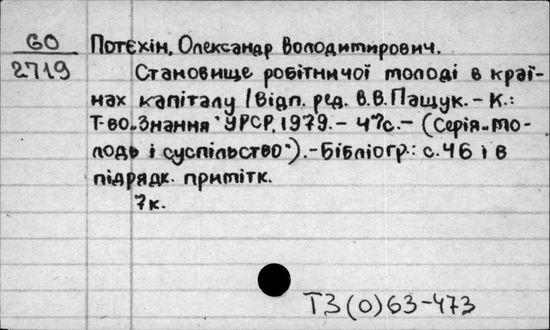 GO
2719
Потєхін, Олександр Володимирович.
Становище робітничої молоді в краї-
нах капіталу / Відп. ред. В.В. Пащук. – К.:
Т-во „Знання" УРСР, 1979. – 47с. – (Серія „Мо-
лодь і суспільство"). – Бібліогр.: с. 46 і в
підрядк. примітк.
7к.
Т3(0)63-473